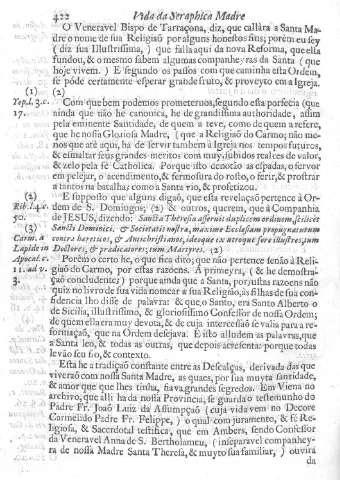 422 Vida da Seraphica Madre
O Veneravel Bispo de Tarraçona, diz, que callára a Santa Ma-
dre o nome de sua Religiaõ por alguns honestos fins; porém eu sey
( diz sua Illustrissima, ) que falla aqui da nova Reforma, que ella
fundou, & o mesmo sabem algumas companheyras da Santa ( que
hoje vivem. ) E segundo os passos com que caminha esta Ordem,
se póde certamente esperar grande fruto, & proveyto em a Igreja.
(1) (2)
Yep. l. 3. c. 17.
Com que bem podemos prometernos, segundo esta profecia (que
ainda que não he canonica, he de grandissima authoridade, assim
pela eminente Santidade, de quem a teve, como de quem a refere,
que he nossa Gloriosa Madre, ( que a Religiaõ do Carmo; não me-
nos que até aqui, ha de servir tambem à Igreja nos tempos futuros,
& esmaltar seus grandes meritos com muy subidos realces de valor,
& zelo pela fé Catholica. Porque isto denotão as espadas, o fervor
em pelejar, o ascendimento, & fermosura do rosto, o ferir, & prostrar
a tantos na batalha; como a Santa vio, & profetizou.
(2)
E supposto que algûs digaõ, que esta revelação pertence à Or-
Rib. l. 4. c.
dem de S. Domingos; (2) & outros, querem, que à Companhia
50.
de JESUS, dizendo: Sancta Theresia asserois duplicem ordinem, scilicèt
(3)
Sancti Dominici, & Societatis nostræ, maximè Ecclesiam propugnaturum
Carm. à
contra hæreticos, & Antechristianos, ideoque ex utroque fore illustres, tum
Lapide in
Doctores, & prædicatores; tum Martyres. (2)
Apocal. c.
Porém o certo he, o que fica dito, que não pertence senão à Reli-
11. ad v.
giaõ do Carmo, por estas razoens. A primeyra, ( & he demostra-
3.
çaõ concludente) porque ainda que a Santa, por justas razoens não
quiz no livro de sua vida nomear a sua Religiaõ, ás filhas de sua con-
fidencia lho disse de palavra: & que o Santo, era Santo Alberto o
de Sicilia, illustrissimo, & gloriosissimo Confessor de nossa Ordem;
de quem ella era muy devota, & de cuja intercessaõ se valia para a re-
formaçaõ, que na Ordem desejava. E isto alludem as palavras, que
a Santa leo, & todas as outras, que depois acresenta: porque todas
levão seu fio, & contexto.
Esta he a tradição constante entre as Descalças, derivada das que
viveraõ com nossa Santa Madre, as quaes, por sua muyta santidade,
& amor que que lhes tinha, fiava grandes segredos. Em Viena no
archivo, que alli ha da nossa Provincia, se guarda o testemunho do
Padre Fr. Joaõ Luiz da Assumpçaõ (cuja vida vem no Decore
Carmelido Padre Fr. Felippe, ) o qual com juramento, & fé Re-
ligiosa, & Sacerdotal testifica, que em Ambers, sendo Confessor
da Veneravel Anna de S. Bertholameu, ( inseparavel companhey-
ra de nossa Madre Santa Theresa, & muyto sua familiar, ) ouvira
da